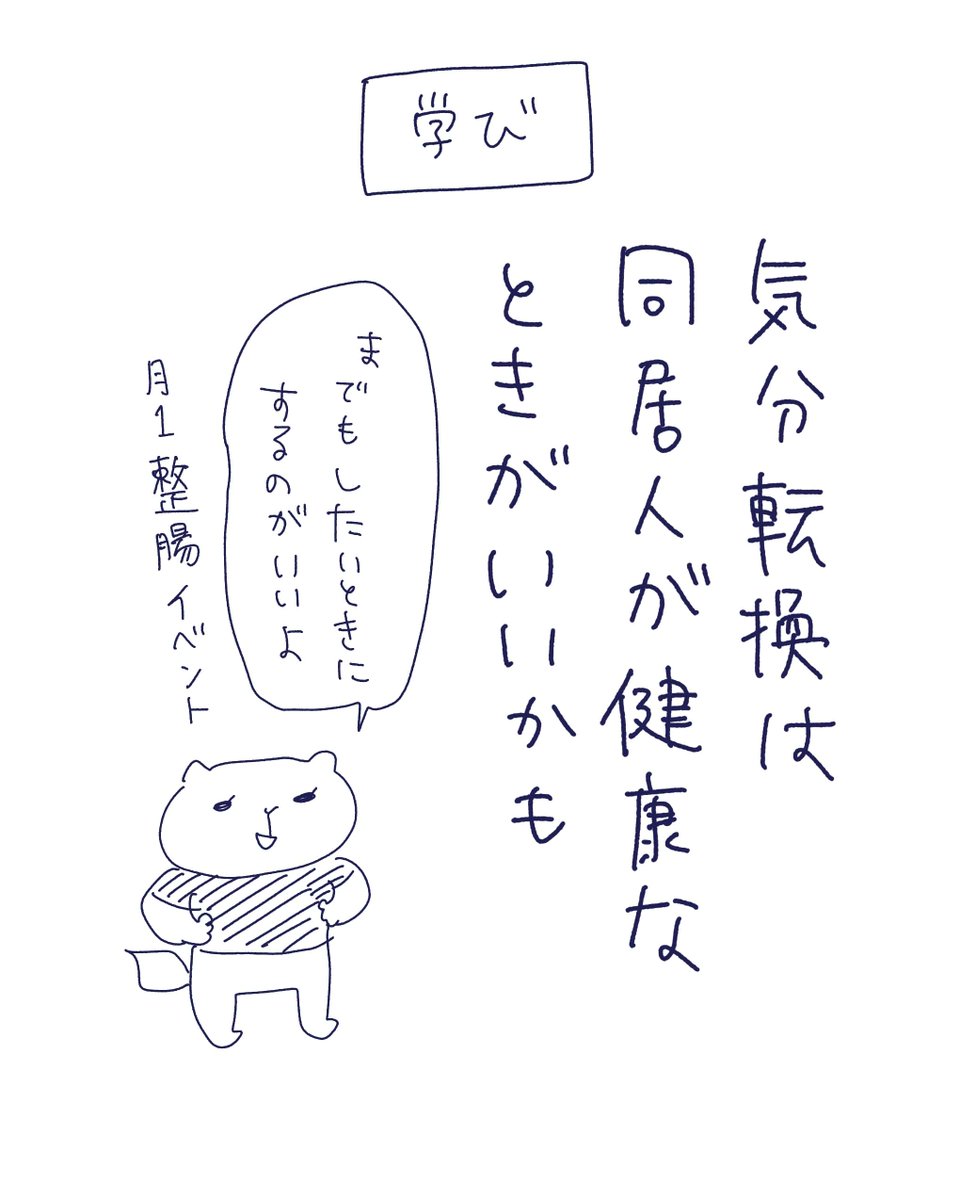 学び
気分転換は
同居人が健康な
ときがいいかも
ま
でもしたいときに
するのがいいよ
月1整腸イベント